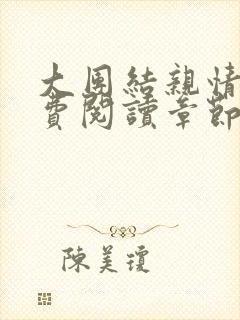 大团結親情
費閱讀章節
陳美瓊